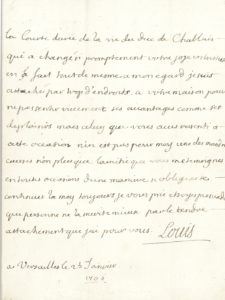 La Courte durée de la vie du duc de Chablais
qui a changé si promptement votre joye en tristesse
en a fait tout de mesme a mon egard je suis
attaché par trop d'endroits a votre maison pour
ne pas sentir vivement ses avantages comme ses
deplaisirs mais celuy que vous avez ressenti a
cette occasion n'en est pas pour moy un des moins
non plus que l'amitié que vous me temoignez
en toutes occasions d'une maniere si obligeante
continues la moy toujours je vous prie et soyes persuadé
que personne ne la merite mieux par le tendre
attachement que j'ai pour vous. Louis
a Versailles le Janvier